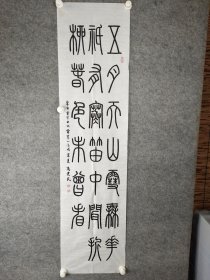 五月天山雪無花
祇有寒笛中聞折
柳春色未曾看